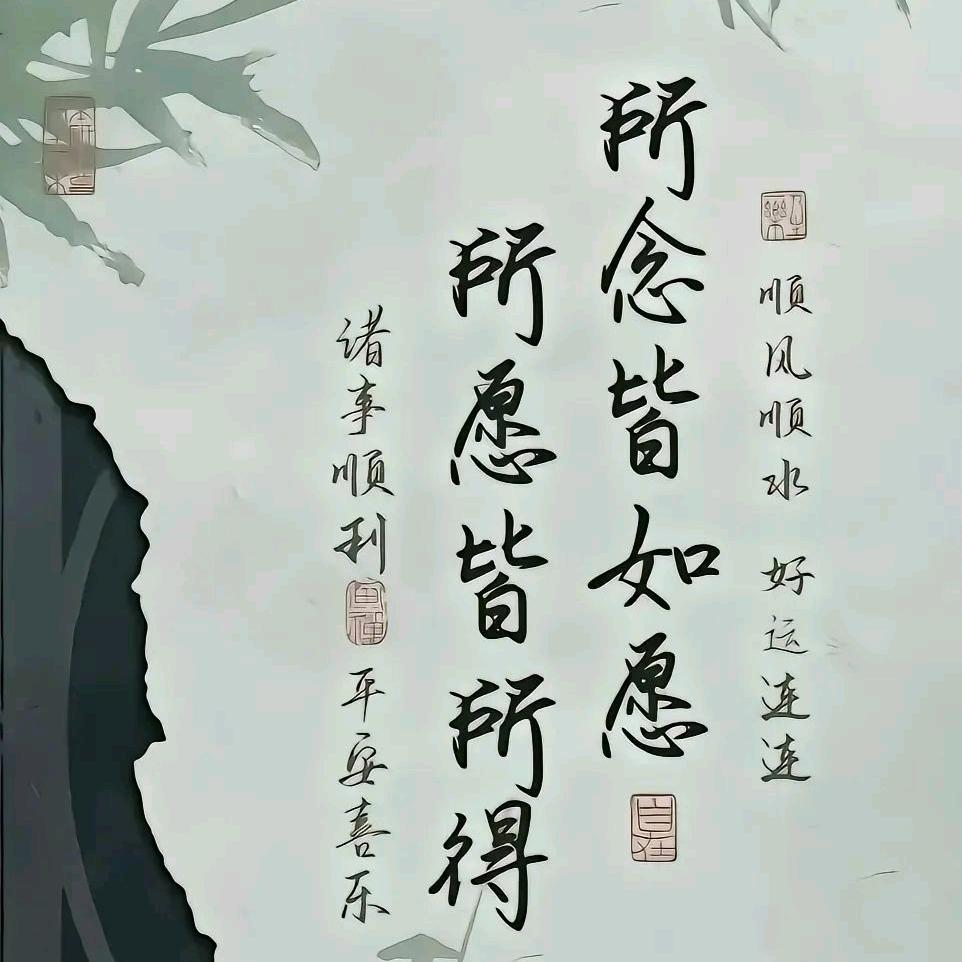 顺风顺水 好运连连
所念皆如愿
自在
所愿皆所得
诸事顺利 平安喜乐